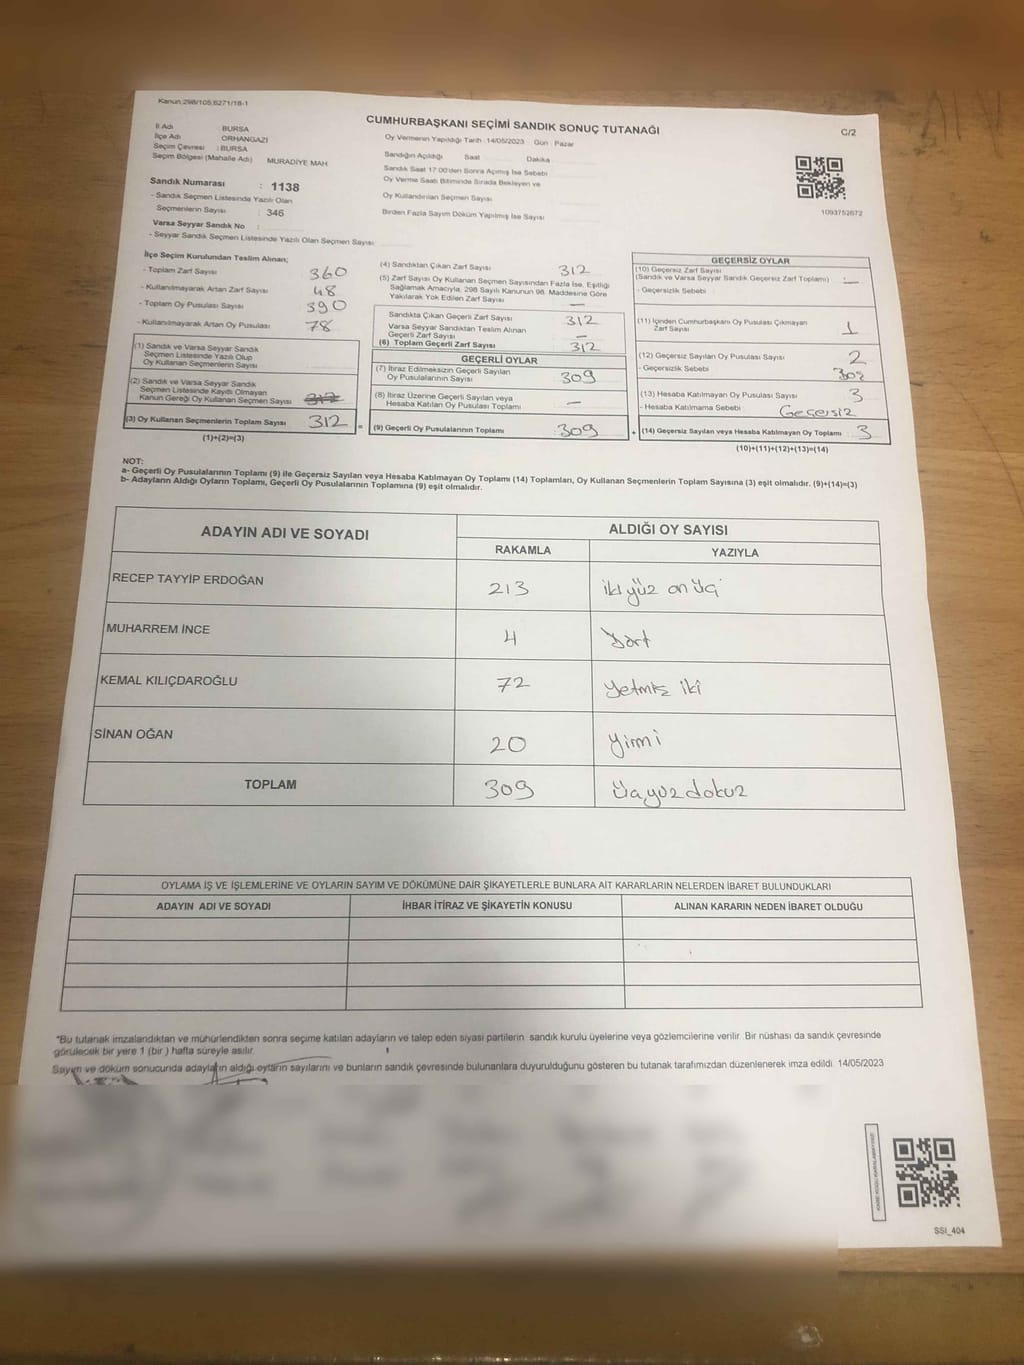 Kanun:298/105,6271/18-1
CUMHURBAŞKANI SEÇİMİ SANDIK SONUÇ TUTANAĞI
C/2
İl Adı : BURSA
İlçe Adı : ORHANGAZİ
Seçim Çevresi : BURSA
Seçim Bölgesi (Mahalle Adı) MURADİYE MAH.
Oy Vermenin Yapıldığı Tarih : 14/05/2023 Gün : Pazar
Sandığın Açıldığı Saat Dakika
Sandık Saat 17:00'den Sonra Açılmış İse Sebebi
Oy Verme Saati Bitiminde Sırada Bekleyen ve
Oy Kullandırılan Seçmen Sayısı
Birden Fazla Sayım Döküm Yapılmış İse Sayısı
1093752672
Sandık Numarası : 1138
- Sandık Seçmen Listesinde Yazılı Olan
Seçmenlerin Sayısı : 346
Varsa Seyyar Sandık No :
- Seyyar Sandık Seçmen Listesinde Yazılı Olan Seçmen Sayısı
İlçe Seçim Kurulundan Teslim Alınan;
- Toplam Zarf Sayısı 360
- Kullanılmayarak Artan Zarf Sayısı 48
- Toplam Oy Pusulası Sayısı 390
- Kullanılmayarak Artan Oy Pusulası 78
(1) Sandık ve Varsa Seyyar Sandık
Seçmen Listesinde Yazılı Olup
Oy Kullanan Seçmenlerin Sayısı
(2) Sandık ve Varsa Seyyar Sandık
Seçmen Listesinde Kayıtlı Olmayan
Kanun Gereği Oy Kullanan Seçmen Sayısı 312
(3) Oy Kullanan Seçmenlerin Toplam Sayısı 312 =
(1)+(2)=(3)
(4) Sandıktan Çıkan Zarf Sayısı 312
(5) Zarf Sayısı Oy Kullanan Seçmen Sayısından Fazla İse, Eşitliği
Sağlamak Amacıyla, 298 Sayılı Kanunun 98. Maddesine Göre
Yakılarak Yok Edilen Zarf Sayısı —
Sandıkta Çıkan Geçerli Zarf Sayısı 312
Varsa Seyyar Sandıktan Teslim Alınan
Geçerli Zarf Sayısı —
(6) Toplam Geçerli Zarf Sayısı 312
GEÇERLİ OYLAR
(7) İtiraz Edilmeksizin Geçerli Sayılan
Oy Pusulalarının Sayısı 309
(8) İtiraz Üzerine Geçerli Sayılan veya
Hesaba Katılan Oy Pusulası Toplamı —
(9) Geçerli Oy Pusulalarının Toplamı 309 +
GEÇERSİZ OYLAR
(10) Geçersiz Zarf Sayısı
(Sandık ve Varsa Seyyar Sandık Geçersiz Zarf Toplamı) : —
- Geçersizlik Sebebi
(11) İçinden Cumhurbaşkanı Oy Pusulası Çıkmayan
Zarf Sayısı 1
(12) Geçersiz Sayılan Oy Pusulası Sayısı 2
- Geçersizlik Sebebi
(13) Hesaba Katılmayan Oy Pusulası Sayısı 3
- Hesaba Katılmama Sebebi : Geçersiz
(14) Geçersiz Sayılan veya Hesaba Katılmayan Oy Toplamı 3
(10)+(11)+(12)+(13)=(14)
NOT:
a- Geçerli Oy Pusulalarının Toplamı (9) ile Geçersiz Sayılan veya Hesaba Katılmayan Oy Toplamı (14) Toplamları, Oy Kullanan Seçmenlerin Toplam Sayısına (3) eşit olmalıdır. (9)+(14)=(3)
b- Adayların Aldığı Oyların Toplamı, Geçerli Oy Pusulalarının Toplamına (9) eşit olmalıdır.
ADAYIN ADI VE SOYADI ALDIĞI OY SAYISI
RAKAMLA YAZIYLA
RECEP TAYYİP ERDOĞAN 213 iki yüz on üç
MUHARREM İNCE 4 Dört
KEMAL KILIÇDAROĞLU 72 Yetmiş iki
SİNAN OĞAN 20 Yirmi
TOPLAM 309 Üçyüz dokuz
OYLAMA İŞ VE İŞLEMLERİNE VE OYLARIN SAYIM VE DÖKÜMÜNE DAİR ŞİKAYETLERLE BUNLARA AİT KARARLARIN NELERDEN İBARET BULUNDUKLARI
ADAYIN ADI VE SOYADI İHBAR İTİRAZ VE ŞİKAYETİN KONUSU ALINAN KARARIN NEDEN İBARET OLDUĞU
"Bu tutanak imzalandıktan ve mühürlendikten sonra seçime katılan adayların ve talep eden siyasi partilerin sandık kurulu üyelerine veya gözlemcilerine verilir. Bir nüshası da sandık çevresinde
görülecek bir yere 1 (bir ) hafta süreyle asılır.
Sayım ve döküm sonucunda adayların aldığı oyların sayılarını ve bunların sandık çevresinde bulunanlara duyurulduğunu gösteren bu tutanak tarafımızdan düzenlenerek imza edildi. 14/05/2023
SSI_404